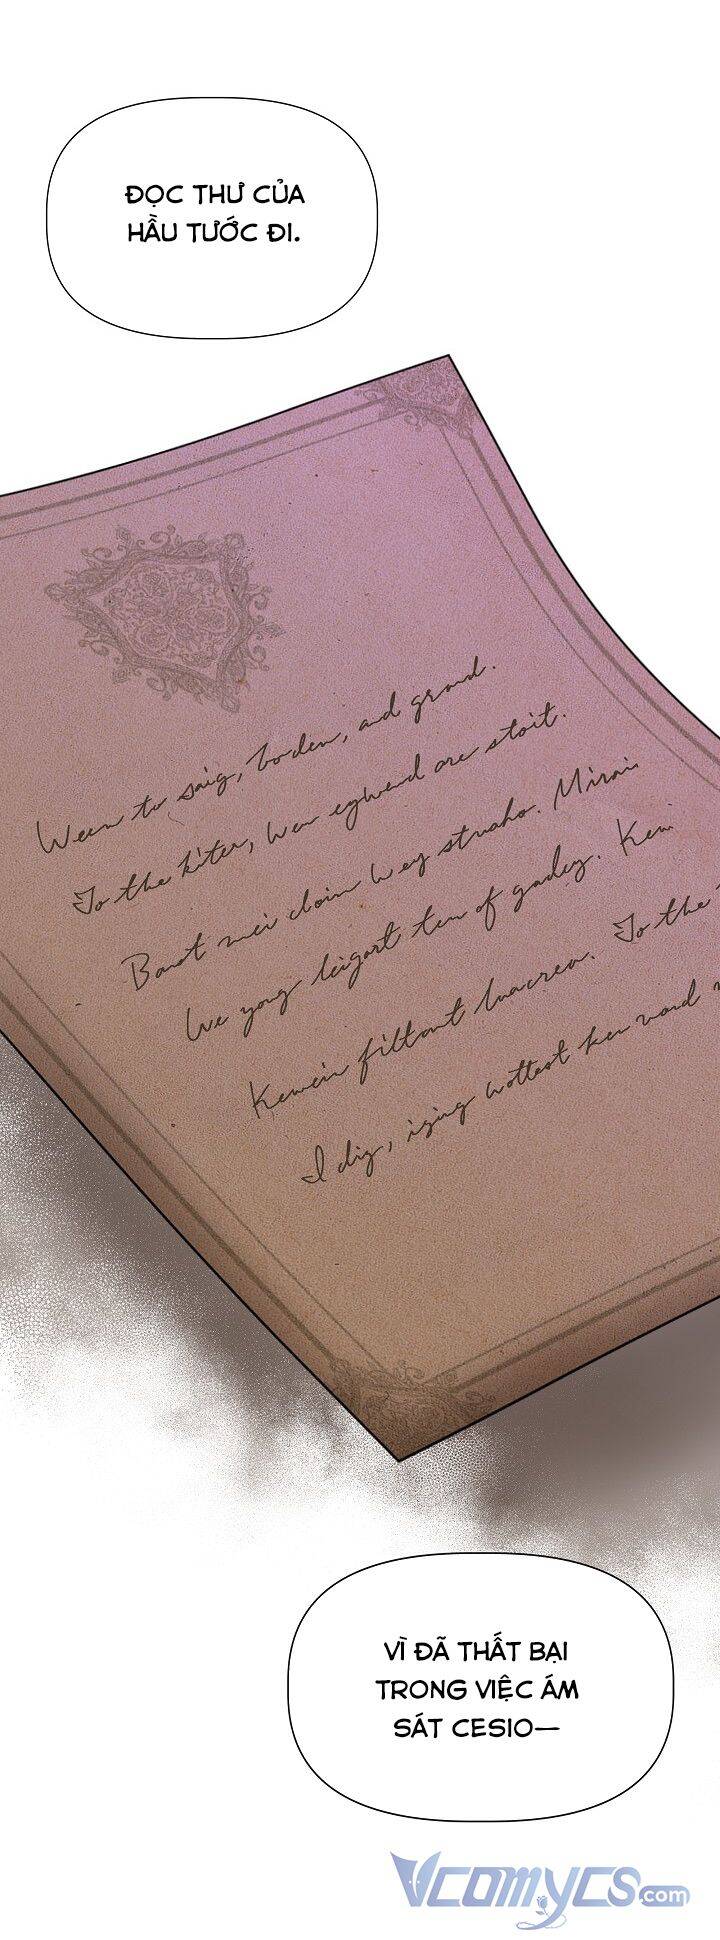 ĐỌC THƯ CỦA
HẦU TƯỚC ĐI.
Ween to saig, boden, and grond.
To the kiter, wen egwend are stoit.
Banot mei cloin wey strusho. Mirai
We yong leigart ten of gadey. Kem
Kewein filtont luacrea. To the
I dig, iging wottest ken vord
VÌ ĐÃ THẤT BẠI
TRONG VIỆC ÁM
SÁT CESIO—
VCOMYCS.com